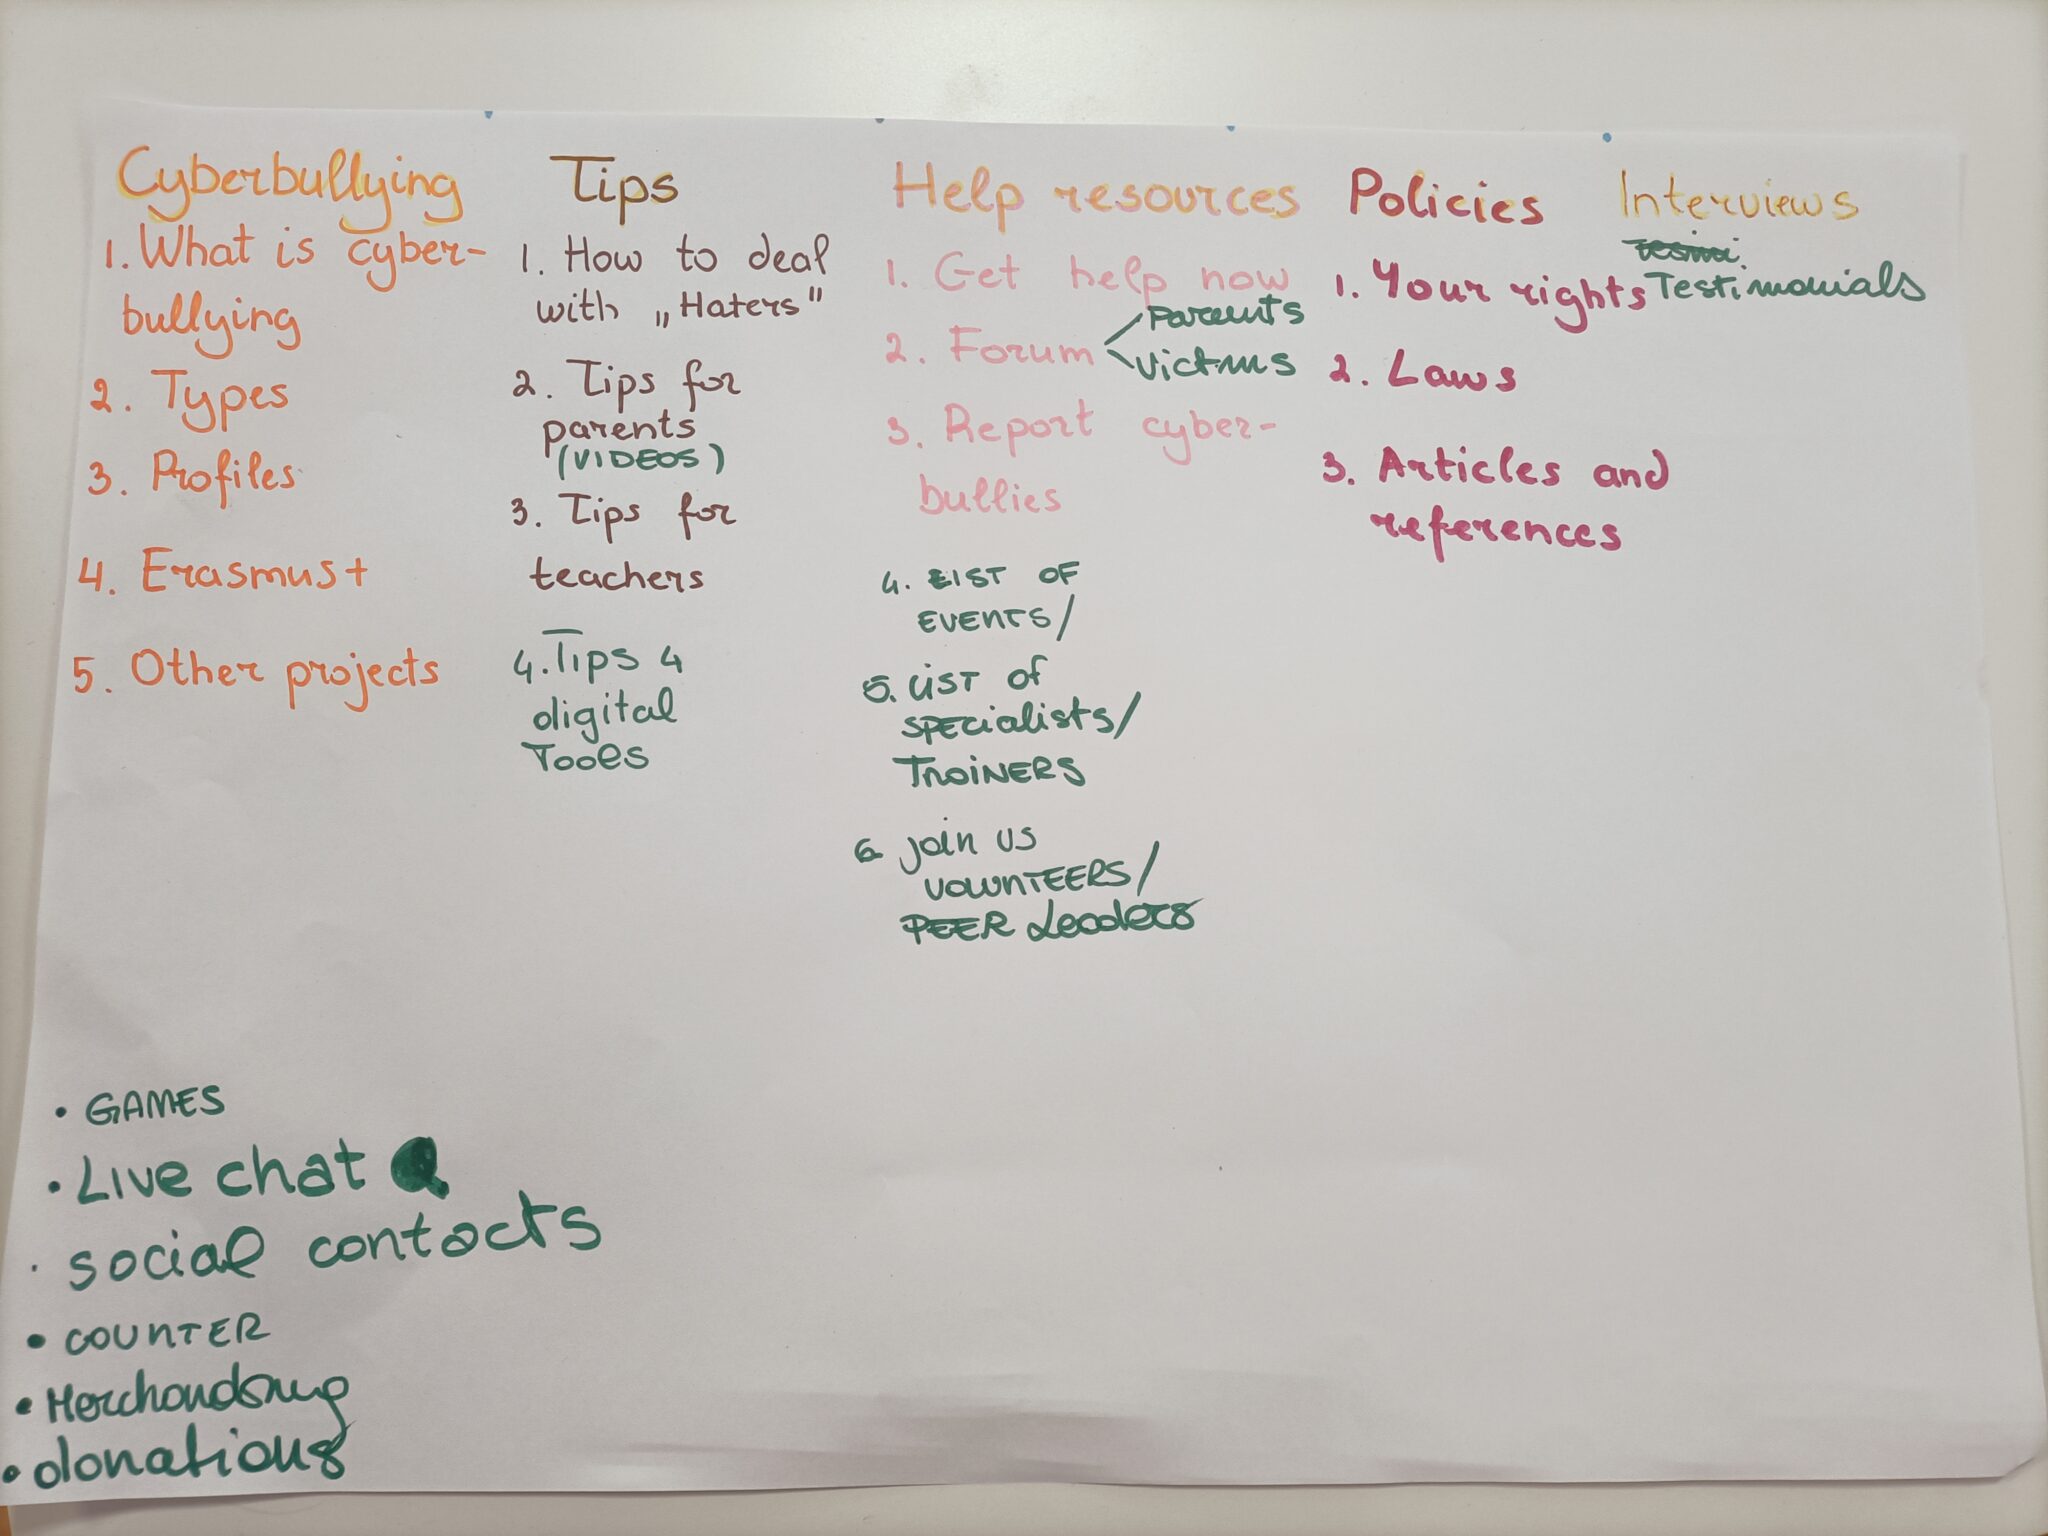 Cyberbullying
1. What is cyber-
bullying
2. Types
3. Profiles
4. Erasmus+
5. Other projects
Tips
1. How to deal
with „Haters"
2. Tips for
parents
(VIDEOS)
3. Tips for
teachers
4. Tips 4
digital
Tools
Help resources
1. Get help now
2. Forum
Parents
Victims
3. Report cyber-
bullies
4. LIST OF
EVENTS/
5. LIST of
SPECialists/
TRaiNERS
6. Join US
VOLUNTEERS/
PEER Leaders
Policies
1. Your rights
2. Laws
3. Articles and
references
Interviews
Testimonials
• GAMES
• LIVE chat
• social contacts
• COUNTER
• Merchandising
• donations